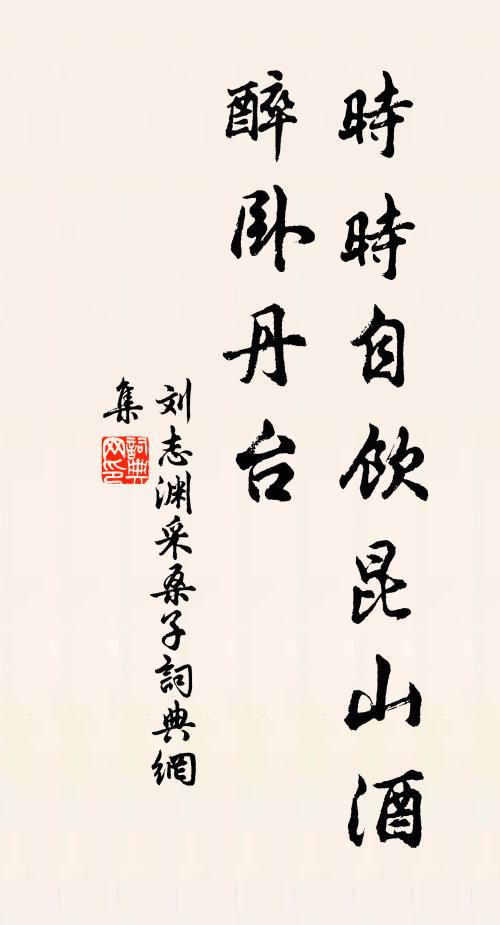 時時自飲昆山酒
醉卧丹台
刘志渊采桑子詞典網
集
詞典
网印